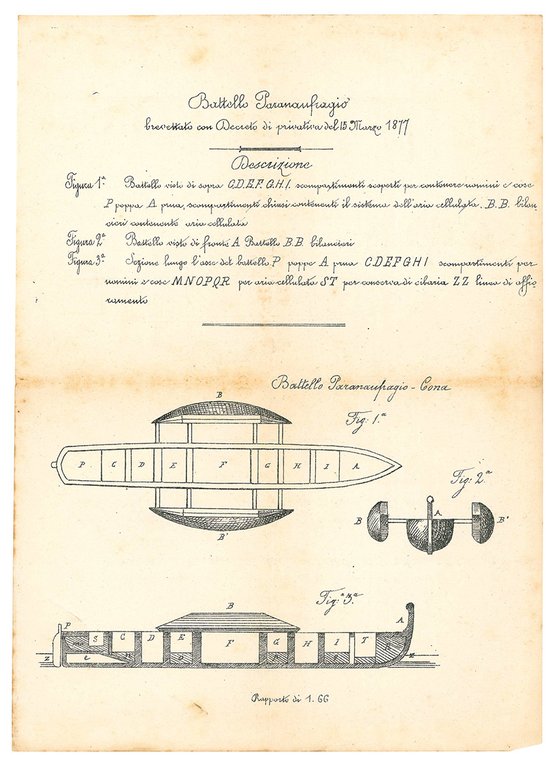 Battello Paranaufragio
brevettato con Decreto di privativa del 15 Marzo 1877
Descrizione
Figura 1ª Battello visto di sopra C.D.E.F.G.H.I. scompartimenti scoperti per contenere uomini e cose
P poppa A prua, scompartimenti chiusi contenente il sistema dell'aria cellulata. B.B. bilan-
cieri contenente aria cellulata
Figura 2ª Battello visto di fronte A Battello B B bilancieri
Figura 3ª Sezione lungo l'asse del battello P poppa A prua C D E F G H I scompartimenti per
uomini e cose M N O P Q R per aria cellulata S T per conserva di cibaria Z Z linea di affio-
ramento
Battello Paranaufragio - Cona
Fig: 1.ª
B
P C D E F G H I A
B'
Fig: 2.ª
B A. B'
Fig: 3ª
B
P S C D E F G H I T A
Z Z
Rapporto di 1. 66